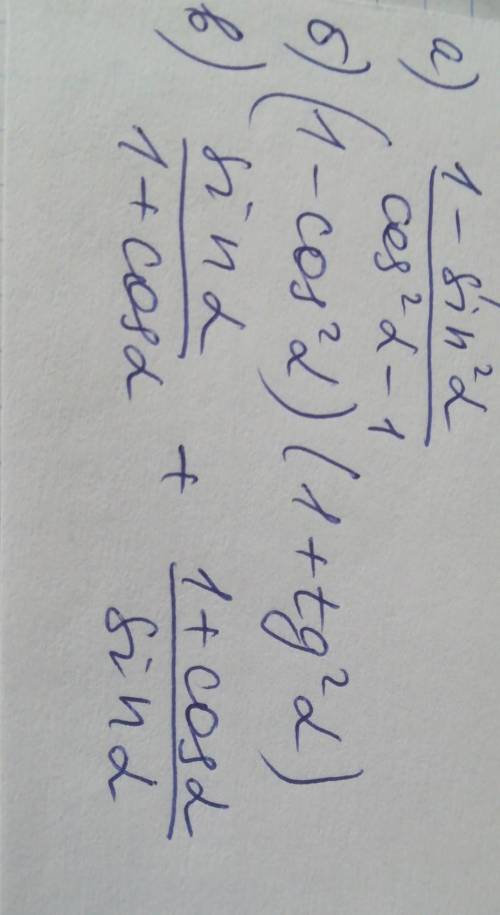 а) (1 - sin²α)/(cos²α - 1)
б) (1 - cos²α)(1 + tg²α)
в) sinα/(1 + cosα) + (1 + cosα)/sinα